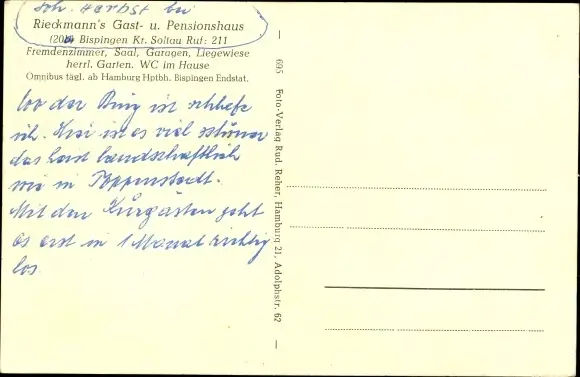 Joh. Herbst bei
Rieckmann's Gast- u. Pensionshaus
Bispingen Kr. Soltau Ruf: 211
Fremdenzimmer, Saal, Garagen, Liegewiese
herrl. Garten. WC im Hause
Omnibus tägl. ab Hamburg Hptbh. Bispingen Endstat.
wo der Ring ist schlafe
ich. Hier ist es viel schöner
das heist landschaftlich
wie in Poppenstedt.
Mit den Kurgästen geht
es erst in 1 Monat richtig
los
695 Foto-Verlag Rud. Reher, Hamburg 21, Adolphstr. 62